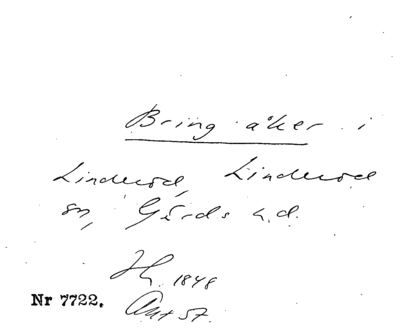 Bring åker i
Linderöd, Linderöd
sn, Gärds h.d.
1848
Nr 7722.